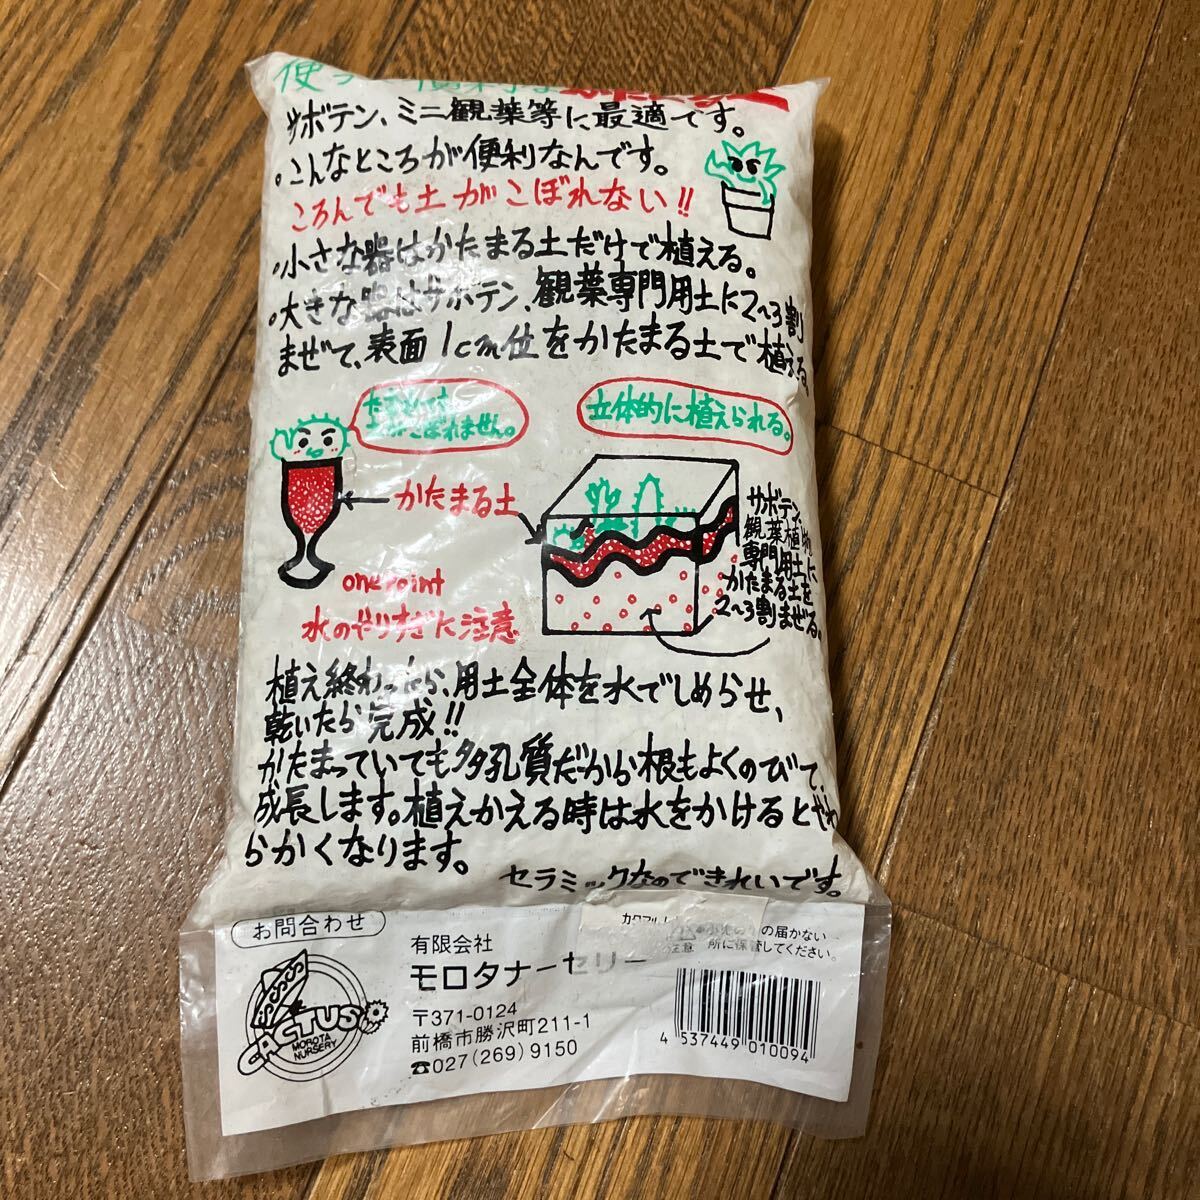 サボテン、ミニ観葉等に最適です。
。こんなところが便利なんです。
ころんでも土がこぼれない!!
。小さな器はかたまる土だけで植える。
。大きな器はサボテン、観葉専門用土に2〜3割
まぜて、表面1cm位を かたまる土で植える。
土がこぼれません。
立体的に植えられる。
かたまる土
サボテン、
観葉植物
専門用土に
かたまる土を
2〜3割まぜる。
onepoint
水のやりすぎに注意
植え終わったら、用土全体を水でしめらせ、
乾いたら完成!!
かたまっていても多孔質だから根もよくのびて、
成長します。植えかえる時は水をかけるとやわ
らかくなります。
セラミックなのできれいです。
お問合わせ
の届かない
注意 所に保管してください。
有限会社
モロタナーセリー
〒371-0124
前橋市勝沢町211-1
☎027(269)9150
CACTUS
MOROTA
NURSERY
4 537449 010094